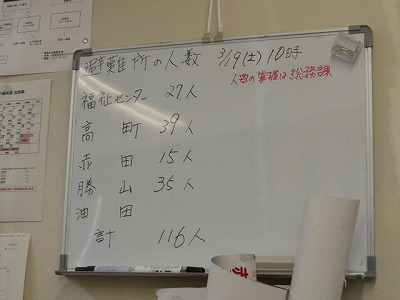 避難所の人数 3/19(土) 10時
人数の掌握は総務課
福祉センター 27人
高町 39人
赤田 15人
勝山 35人
油田
計 116人